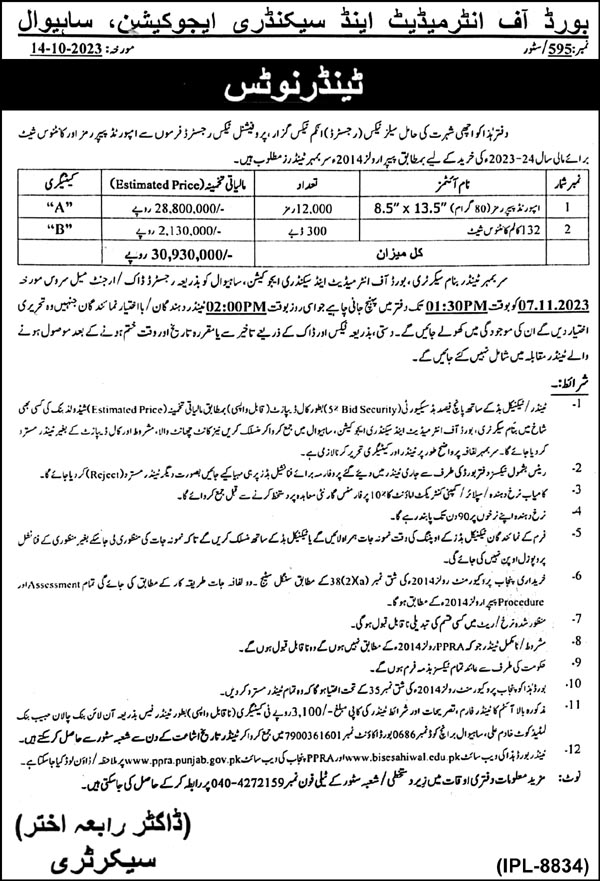 بورڈ آف انٹرمیڈیٹ اینڈ سیکنڈری ایجوکیشن، ساہیوال
نمبر: 595/سٹور
مورخہ: 14-10-2023
ٹینڈر نوٹس
دفتر ہذا کو اچھی شہرت کی حامل سیلز ٹیکس (رجسٹرڈ) انکم ٹیکس گزار، پروفیشنل ٹیکس رجسٹرڈ فرموں سے امپورٹڈ پیپر رمز اور کاؤنٹوس شیٹ
برائے مالی سال 24-2023ء کی خرید کے لیے بمطابق پیپرا رولز 2014ء سربمہر ٹینڈرز مطلوب ہیں۔
نمبر شمار نام آئٹمز تعداد مالیاتی تخمینہ (Estimated Price) کیٹیگری
1 امپورٹڈ پیپر رمز (80 گرام) 8.5" x 13.5" 12,000 رمز 28,800,000/- روپے "A"
2 132 کالم کاؤنٹوس شیٹ 300 ڈبے 2,130,000/- روپے "B"
کل میزان 30,930,000/- روپے
سربمہر ٹینڈر بنام سیکرٹری، بورڈ آف انٹرمیڈیٹ اینڈ سیکنڈری ایجوکیشن، ساہیوال کو بذریعہ رجسٹرڈ ڈاک / ارجنٹ میل سروس مورخہ
07.11.2023 کو بوقت 01:30PM تک دفتر میں پہنچ جانی چاہیے جو اسی روز بوقت 02:00PM ٹینڈر دہندگان / بااختیار نمائندگان جنہیں وہ تحریری
اختیار دیں گے ان کی موجودگی میں کھولے جائیں گے۔ دستی، بذریعہ فیکس اور ڈاک کے ذریعے تاخیر سے یا مقررہ تاریخ اور وقت ختم ہونے کے بعد موصول ہونے
والے ٹینڈر مقابلہ میں شامل نہیں کئے جائیں گے۔
شرائط:۔
1- ٹینڈر/ ٹیکنیکل بڈ کے ساتھ پانچ فیصد بڈ سیکیورٹی (5% Bid Security) بطور کال ڈیپازٹ (قابل واپسی) بمطابق مالیاتی تخمینہ (Estimated Price) شیڈولڈ بنک کی کسی بھی
شاخ میں بنام سیکرٹری، بورڈ آف انٹرمیڈیٹ اینڈ سیکنڈری ایجوکیشن، ساہیوال میں جمع کروا کر منسلک کریں نیز کانٹ چھانٹ والا، مشروط اور کال ڈیپازٹ کے بغیر ٹینڈر مسترد
کر دیا جائے گا۔ سربمہر لفافہ پر واضح طور پر ٹینڈر اور کیٹیگری تحریر کرنا لازمی ہے۔
2- ریٹس بشمول ٹیکسز دفتر بورڈ کی طرف سے جاری ٹینڈر میں دیئے گئے پروفارمہ برائے فنانشل بڈز پر ہی مہیا کیے جائیں بصورت دیگر ٹینڈر مسترد (Reject) کر دیا جائے گا۔
3- کامیاب نرخ دہندہ / سپلائر/ کمپنی کنٹریکٹ اماؤنٹ کا 10% پرفارمنس گارنٹی معاہدہ پر دستخط کرنے سے قبل جمع کروائے گا۔
4- نرخ دہندہ اپنے نرخوں پر 90 دن تک پابند رہے گا۔
5- فرم کے نمائندگان ٹیکنیکل بڈز کے اوپننگ کی وقت نمونہ جات ہمراہ لائیں گے یا ٹیکنیکل بڈ کے ساتھ منسلک کریں گے تاکہ نمونہ جات کی منظوری لی جا سکے بغیر منظوری کے فنانشل
پروپوزل اوپن نہیں کی جائے گی۔
6- خریداری پنجاب پروکیورمنٹ رولز 2014ء کی شق نمبر 38(2)(a) کے مطابق سنگل سٹیج۔ دو لفافہ جات طریقہ کار کے مطابق کی جائے گی تمام Assessment اور
Procedure پیپرا رولز 2014ء کے مطابق ہوگا۔
7- منظور شدہ نرخ / ریٹ میں کسی قسم کی تبدیلی ناقابل قبول ہوگی۔
8- مشروط / نامکمل ٹینڈر جو کہ PPRA رولز 2014ء کے مطابق نہیں ہوں گے وہ ناقابل قبول ہوں گے۔
9- حکومت کی طرف سے عائد تمام ٹیکسز بذمہ فرم ہوں گے۔
10- بورڈ ہذا کو پنجاب پروکیورمنٹ رولز 2014ء کی شق نمبر 35 کے تحت اختیار ہوگا کہ وہ تمام ٹینڈر مسترد کر دیں۔
11- مذکورہ بالا آئٹم کا ٹینڈر فارم، تصریحات اور شرائط ٹینڈر کی کاپی مبلغ -/3,100 روپے فی کیٹیگری (ناقابل واپسی) بطور ٹینڈر فیس بذریعہ آن لائن بنک چالان حبیب بنک
لمیٹڈ کوٹ خادم علی، ساہیوال برانچ کوڈ نمبر 0686 بورڈ اکاؤنٹ نمبر 7900361601 میں جمع کروا کر ٹینڈر تاریخ اشاعت کے دن سے شعبہ سٹور سے حاصل کر سکتے ہیں۔
12- ٹینڈر بورڈ ہذا کی ویب سائٹ www.bisesahiwal.edu.pk اور PPRA پنجاب کی ویب سائٹ www.ppra.punjab.gov.pk پر ملاحظہ / ڈاؤن لوڈ کیا جا سکتا ہے۔
نوٹ: مزید معلومات دفتری اوقات میں زیر دستخطی / شعبہ سٹور کے ٹیلی فون نمبر 040-4272159 پر رابطہ کر کے حاصل کی جا سکتی ہیں۔
(ڈاکٹر رابعہ اختر)
سیکرٹری
(IPL-8834)